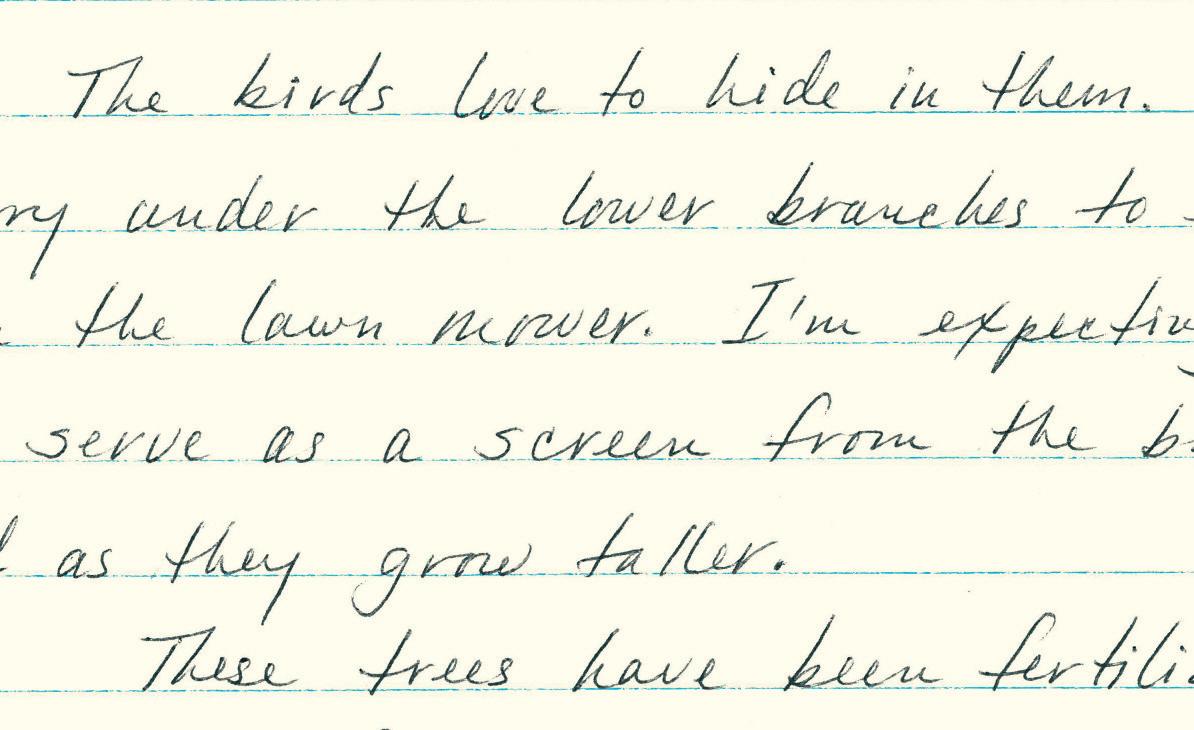 The birds love to hide in them.
ry under the lower branches to
the lawn mower. I'm expectin
serve as a screen from the b
as they grow taller.
These trees have been fertili